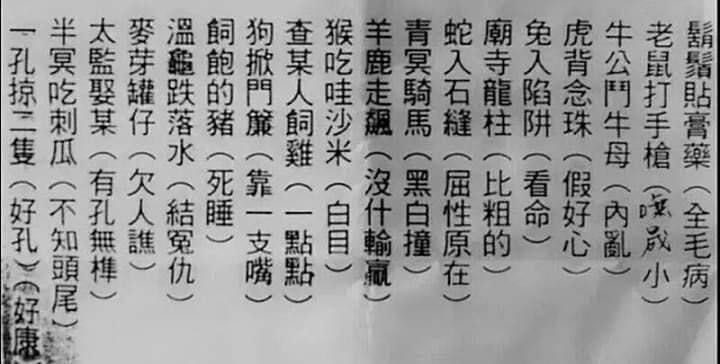 鬍鬚貼膏藥（全毛病）
老鼠打手槍（小）
牛公鬥牛母（內亂）
虎背念珠（假好心）
兔入陷阱（看命）
廟寺龍柱（比粗的）
蛇入石縫（屈性原在）
青冥騎馬（黑白撞）
羊鹿走飆（沒什輸贏）
猴吃哇沙米（白目）
查某人飼雞（一點點）
狗掀門簾（靠一支嘴）
飼飽的豬（死睡）
溫龜跌落水（結冤仇）
麥芽罐仔（欠人譙）
太監娶某（有孔無榫）
半冥吃刺瓜（不知頭尾）
一孔掠二隻（好孔）（好康）